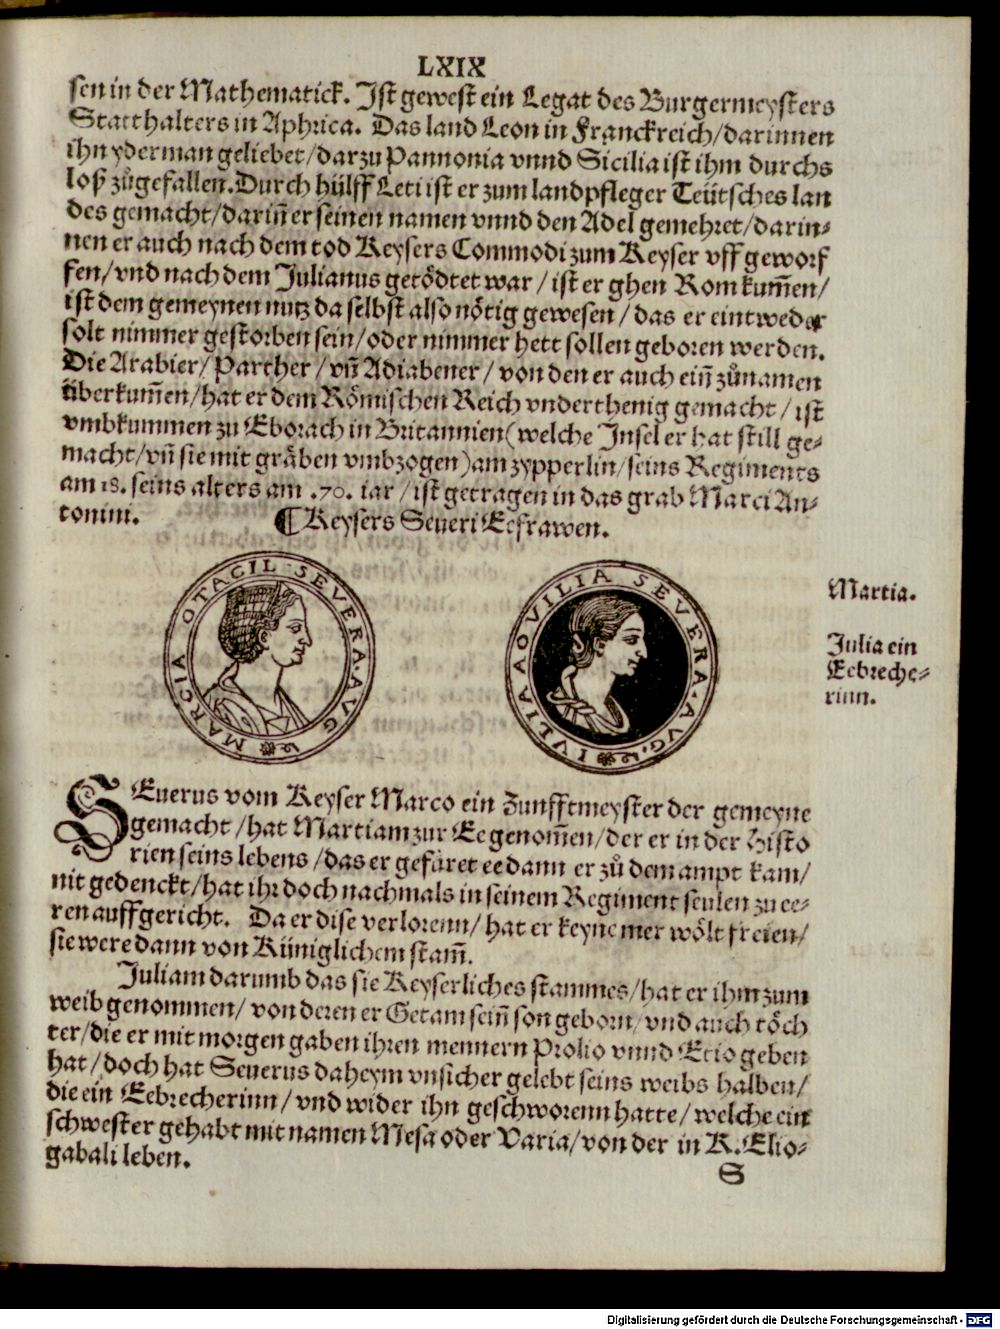 LXIX
sen in der Mathematick. Jst gewest ein Legat des Burgermeysters
Statthalters in Aphrica. Das land Leon in Franckreich/darinnen
ihn yderman geliebet/darzu Pannonia vnnd Sicilia ist ihm durchs
loß zůgefallen. Durch hülff Leti ist er zum landpfleger Teütsches lan
des gemacht/darin̄ er seinen namen vnnd den Adel gemehret/darin-
nen er auch nach dem tod Keysers Commodi zum Keyser vff geworf
fen/vnd nach dem Julianus getödtet war/ist er ghen Rom kum̄en/
ist dem gemeynen nutz da selbst also nötig gewesen/das er eintweder
solt nimmer gestorben sein/oder nimmer hett sollen geboren werden.
Die Arabier/Parther/vn̄ Adiabener/von den er auch ein̄ zůnamen
überkum̄en/hat er dem Römischen Reich vnderthenig gemacht/ist
vmbkummen zu Eborach in Britannien(welche Jnsel er hat still ge-
macht/vn̄ sie mit gräben vmbzogen)am zypperlin/seins Regiments
am 18. seins alters am .70. iar/ist getragen in das grab Marci An-
tonini.
¶ Keysers Seueri Eefrawen.
MARCIA OTACIL SEVERA AVG
IVLIA AQVILIA SEVERA AVG.
Martia.
Julia ein
Eebreche-
rinn.
SEuerus vom Keyser Marco ein Zunfftmeyster der gemeyne
gemacht/hat Martiam zur Ee genom̄en/der er in der Histo
rien seins lebens/das er gefüret ee dann er zů dem ampt kam/
nit gedenckt/hat ihr doch nachmals in seinem Regiment seulen zu ee-
ren auffgericht. Da er dise verlorenn/hat er keyne mer wölt freien/
sie were dann von Küniglichem stam̄.
Juliam darumb das sie Keyserliches stammes/hat er ihm zum
weib genommen/von deren er Getam sein̄ son geborn/vnd auch töch
ter/die er mit morgen gaben ihren mennern Probo vnnd Etio geben
hat/doch hat Seuerus daheym vnsicher gelebt seins weibs halben/
die ein Eebrecherinn/vnd wider ihn geschworenn hatte/welche ein
schwester gehabt mit namen Mesa oder Varia/von der in K. Elio-
gabali leben.
S
Digitalisierung gefördert durch die Deutsche Forschungsgemeinschaft - DFG